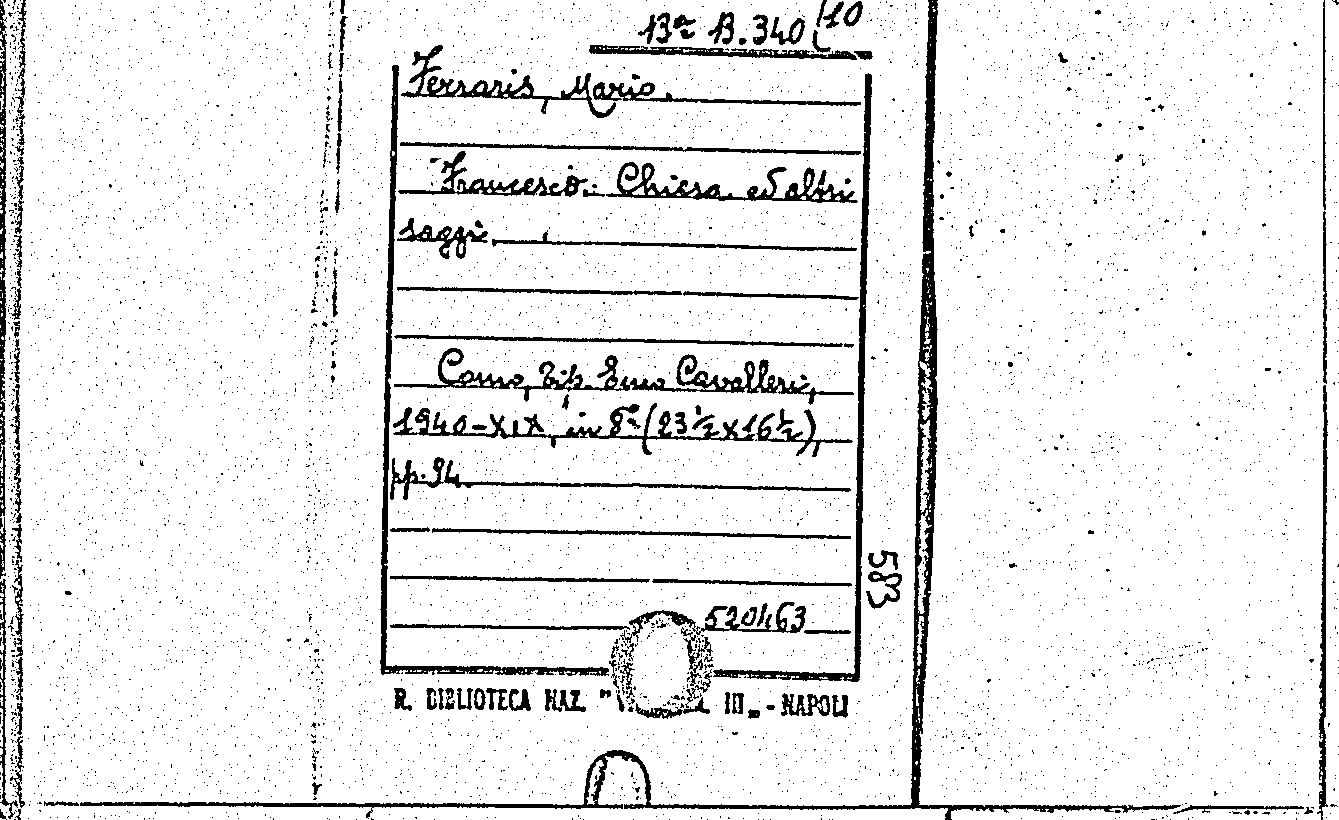 Bª B. 340 (10
Ferraris, Mario.
Francesco Chiesa ed altri
saggi.
Como, Tip. Emo Cavalleri,
1940-XIX, in 8º (23½ x 16½),
pp. 94.
520463
583
R. BIBLIOTECA NAZ. " III„ - NAPOLI